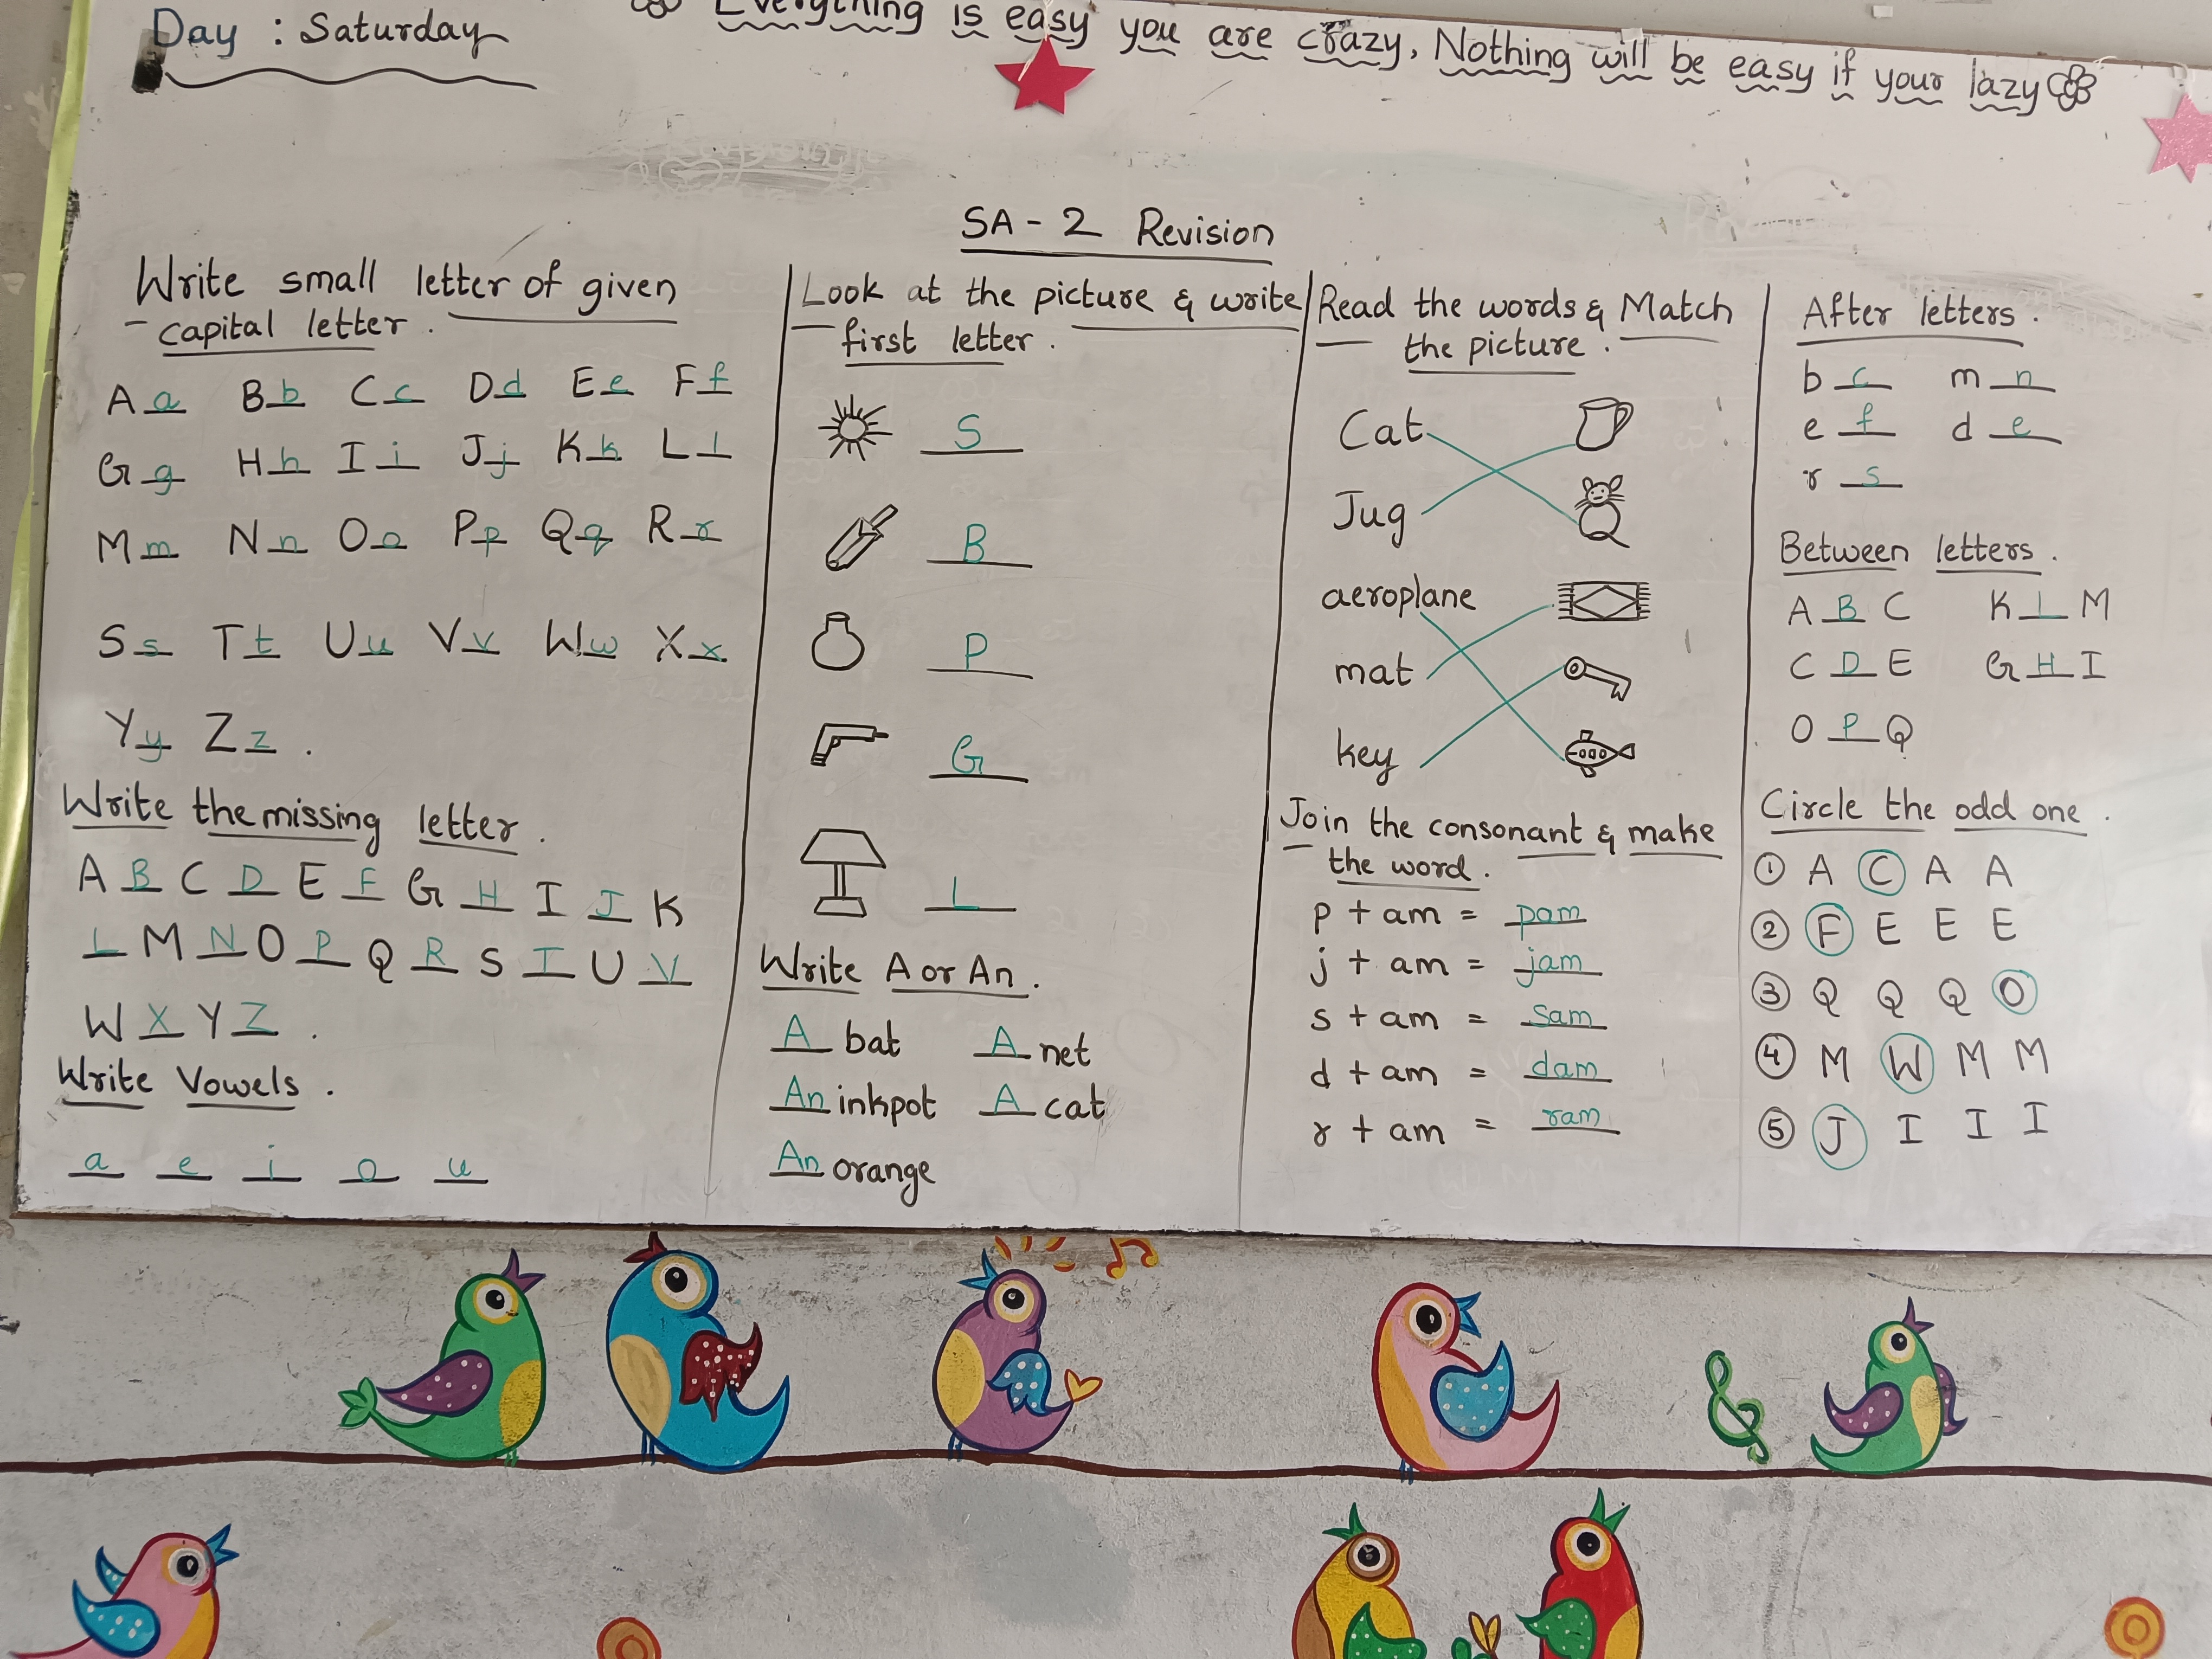 Day : Saturday
Everything is easy you are crazy, Nothing will be easy if your lazy
SA - 2 Revision
Write small letter of given
capital letter.
A a B b C c D d E e F f
G g H h I i J j K k L l
M m N n O o P p Q q R r
S s T t U u V v W w X x
Y y Z z .
Write the missing letter.
A B C D E F G H I J K
L M N O P Q R S T U V
W X Y Z .
Write Vowels.
a e i o u
Look at the picture & write
first letter.
S
B
P
G
L
Write A or An.
A bat A net
An inkpot A cat
An orange
Read the words & Match
the picture.
Cat
Jug
aeroplane
mat
key
Join the consonant & make
the word.
p + am = pam
j + am = jam
s + am = sam
d + am = dam
r + am = ram
After letters.
b c m n
e f d e
r s
Between letters.
A B C K L M
C D E G H I
O P Q
Circle the odd one.
① A C A A
② F E E E
③ Q Q Q O
④ M W M M
⑤ J I I I